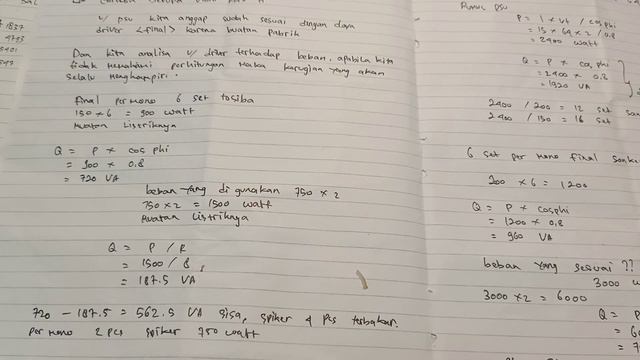 w/ psu kita anggap sudah sesuai dengan daya
driver <final> karna buatan pabrik
Dan kita analisa w/ driver terhadap beban, apabila kita
tidak memahami perhitungan maka kerugian yang akan
selalu menghampiri.
final per mono 6 set tosiba
150 x 6 = 900 watt
Muatan Listriknya
Q = P x cos phi
= 900 x 0.8
= 720 VA
beban yang di gunakan 750 x 2
750 x 2 = 1500 watt
Muatan Listriknya
Q = P / R
= 1500 / 8
= 187.5 VA
720 - 187.5 = 562.5 VA sisa, spiker 4 pcs terbakar.
per mono 2 pcs spiker 750 watt
1837
4795
5401
Rumus PSU
P = I x vt / cos phi
= 15 x 64 x 2 / 0.8
= 2400 watt
Q = P x cos phi
= 2400 x 0.8
= 1920 VA
2400 / 200 = 12 set
2400 / 150 = 16 set
6 set per mono final sanke
200 x 6 = 1200
Q = P x cosphi
= 1200 x 0,8
= 960 VA
beban yang sesuai ??
3000 w
3000 x 2 = 6000
Q = P
= 60
= 7